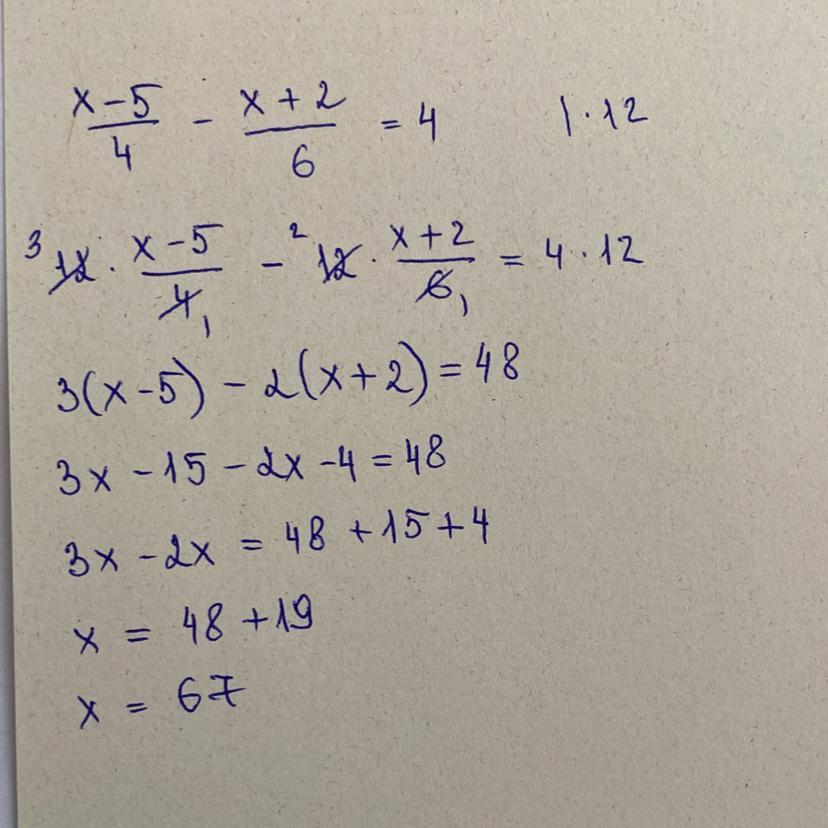 x-5/4 - x+2/6 = 4 | · 12
3 12 · x-5/4 1 - 2 12 · x+2/6 1 = 4 · 12
3(x-5) - 2(x+2) = 48
3x - 15 - 2x - 4 = 48
3x - 2x = 48 + 15 + 4
x = 48 + 19
x = 67